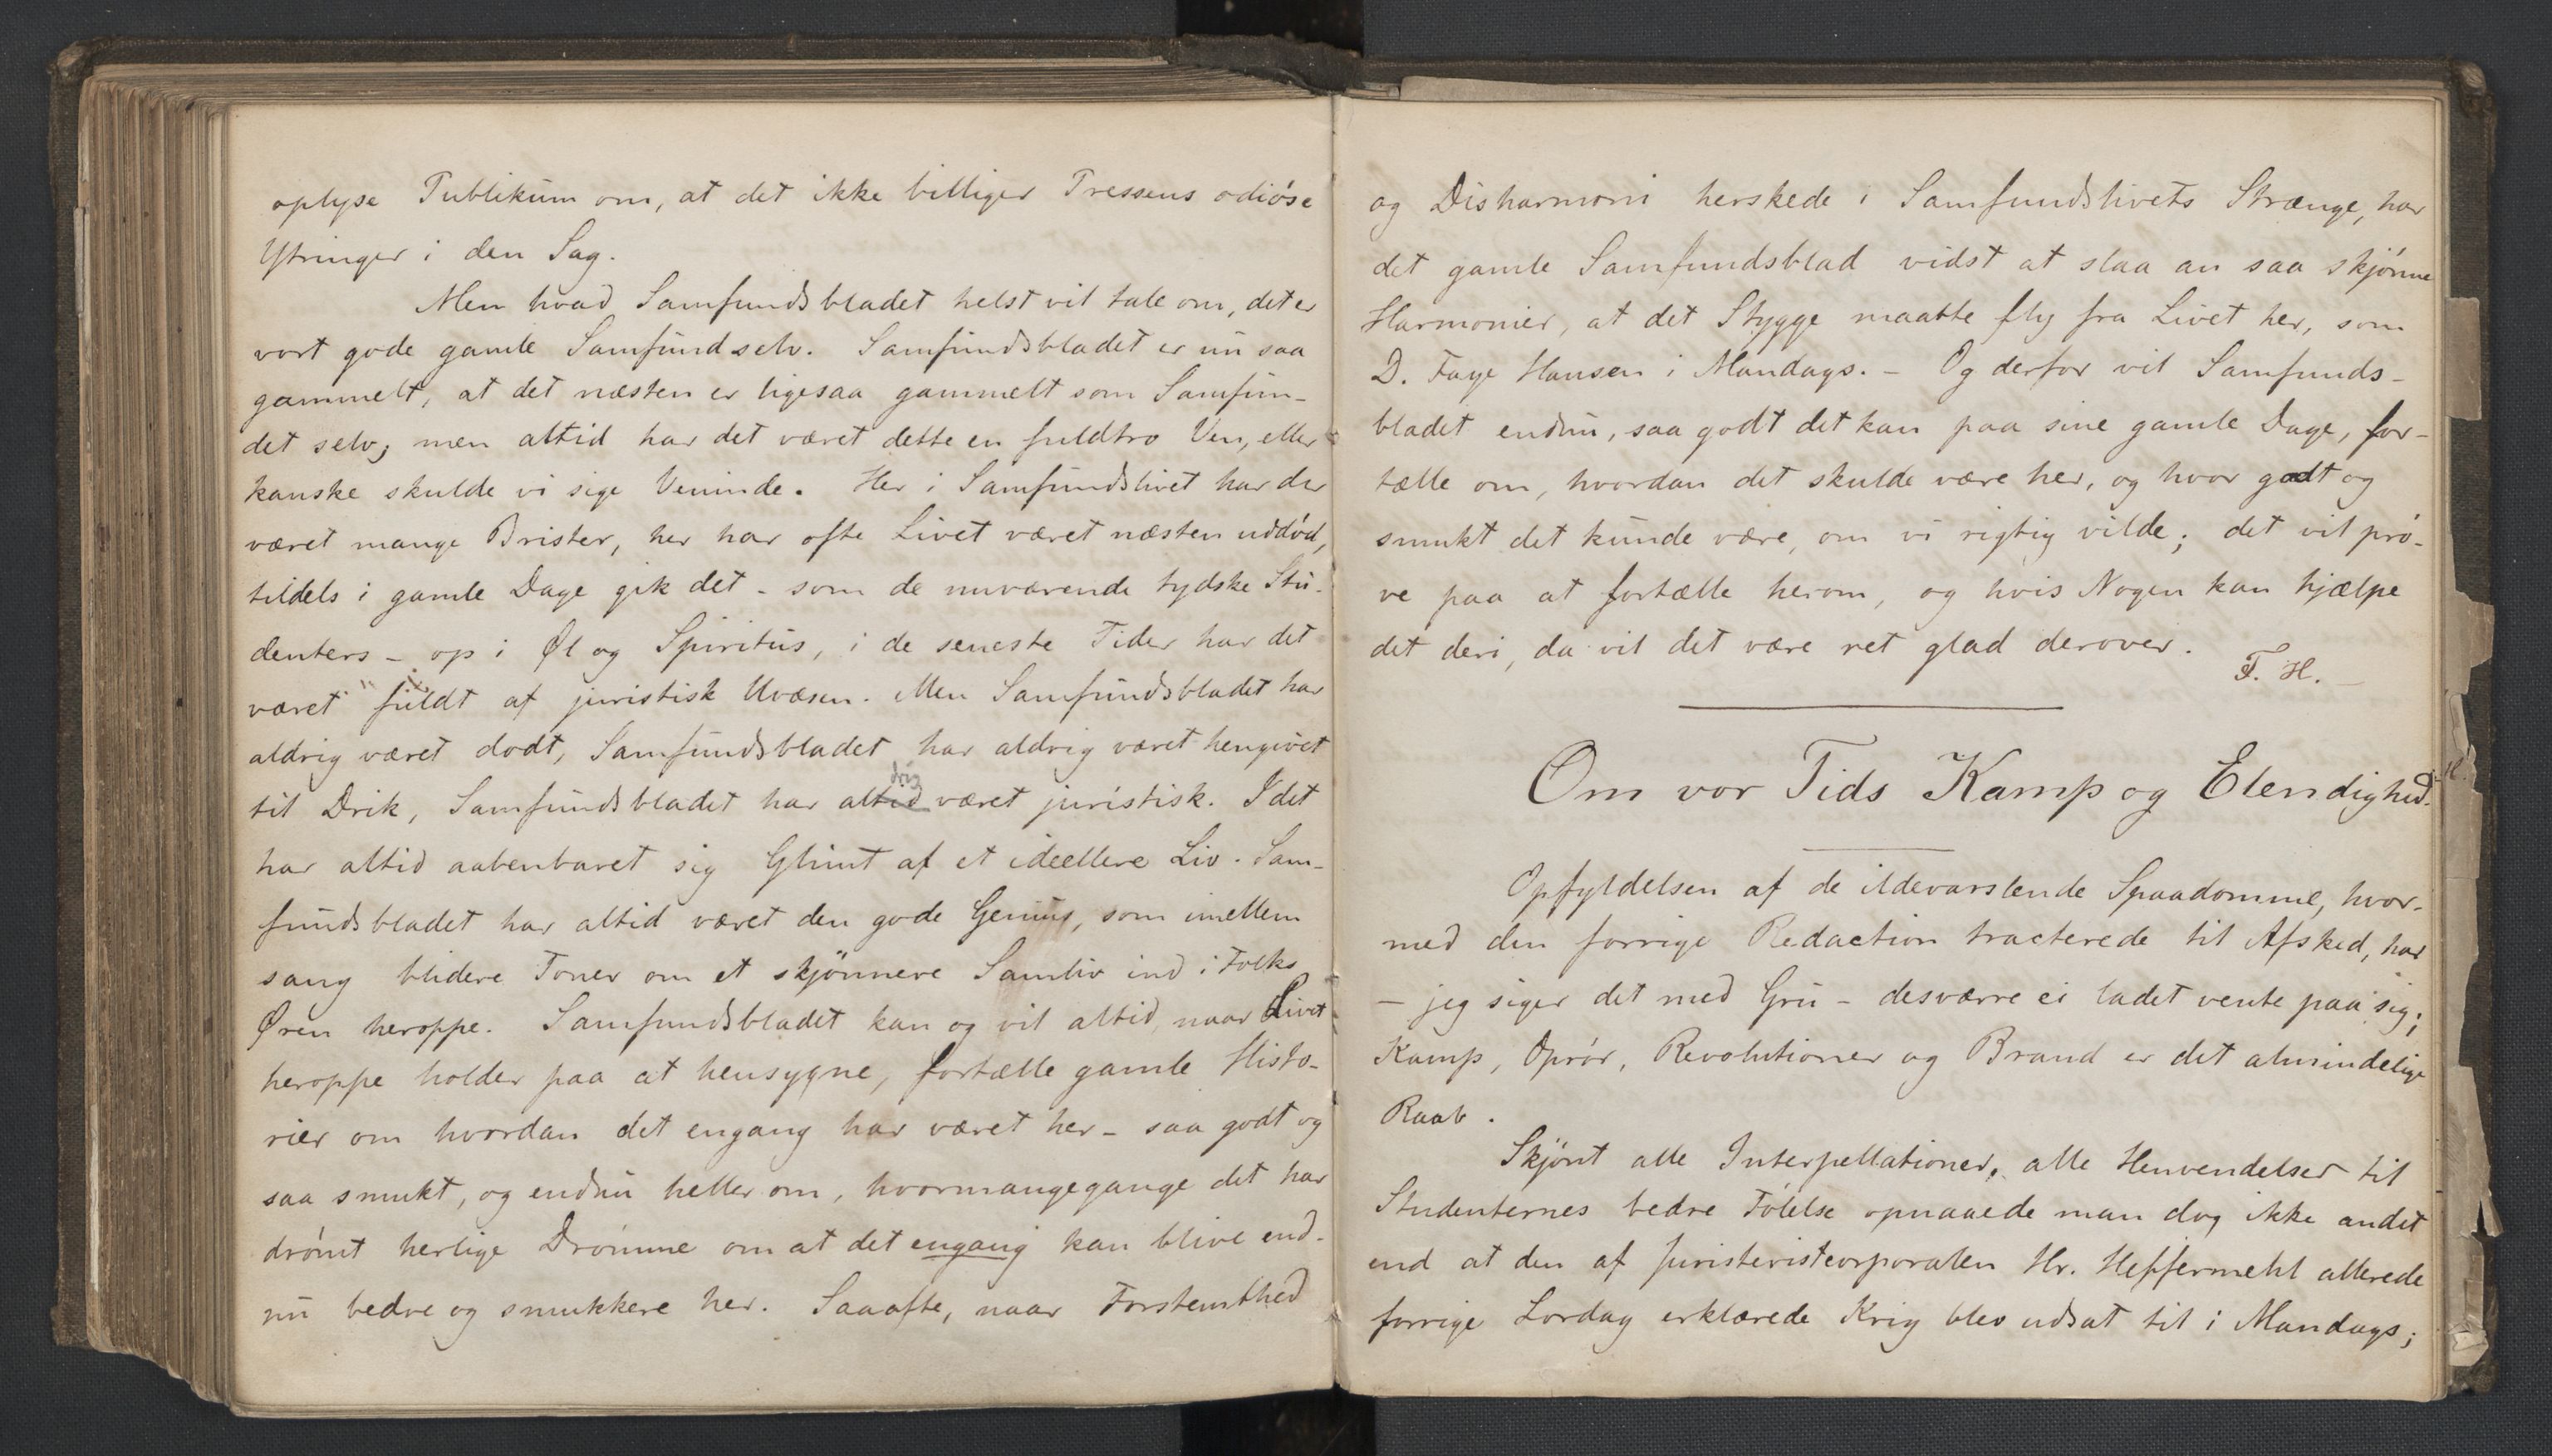 oplyse Publikum om, at det ikke billiger Pressens odiöse
Ytringer i den Sag.
Men hvad Samfundsbladet helst vil tale om, det er
vort gode gamle Samfund selv. Samfundsbladet er nu saa
gammelt, at det næsten er ligesaa gammelt som Samfun-
det selv; men altid har det været dette en fuldtro Ven, eller
kanske skulde vi sige Veninde. Her i Samfundslivet har der
været mange Brister, her har ofte Livet været næsten uddød,
tildels i gamle Dage gik det - som de nuværende tydske Stu-
denters - op i Øl og Spiritus, i de seneste Tider har det
været fuldt af juristisk Uvæsen. Men Samfundsbladet har
aldrig været dødt, Samfundsbladet har aldrig været hengivet
til Drik, Samfundsbladet har aldrig været juristisk. I det
har altid aabenbaret sig Glimt af et ideellere Liv. Sam-
fundsbladet har altid været den gode Genius, som imellem
sang blidere Toner om et skjönnere Samliv ind i Folks
Øren heroppe. Samfundsbladet kan og vil altid, naar Livet
heroppe holder paa at hensygne, fortælle gamle Histo-
rier om hvordan det engang har været her - saa godt og
saa smukt, og endnu heller om, hvormangegange det har
drömt herlige Drömme om at det engang kan blive end-
nu bedre og smukkere her. Saaofte, naar Forstemthed
og Disharmoni herskede i Samfundslivets Strænge, har
det gamle Samfundsblad vidst at slaa an saa skjönne
Harmonier, at det Stygge maatte fly fra Livet her, som
D. Faye Hansen i Mandags. - Og derfor vil Samfunds-
bladet endnu, saa godt det kan paa sine gamle Dage, for-
tælle om, hvordan det skulde være her, og hvor godt og
smukt det kunde være, om vi rigtig vilde; det vil prö-
ve paa at fortælle herom, og hvis Nogen kan hjælpe
det deri, da vil det være ret glad derover.
F. H. -
Om vor Tids Kamp og Elendighed.
Opfyldelsen af de ildevarslende Spaadomme, hvor-
med den forrige Redaction tracterede til Afsked, har
- jeg siger det med Gru - desværre ei ladet vente paa sig;
Kamp, Oprör, Revolutioner og Brand er det almindelige
Raab.
Skjönt alle Interpellationer, alle Henvendelser til
Studenternes bedre Fölelse opnaaede man dog ikke andet
end at den af Juristeristcorporalen Hr. Heffermehl allerede
forrige Lördag erklærede Krig blev udsat til i Mandags;